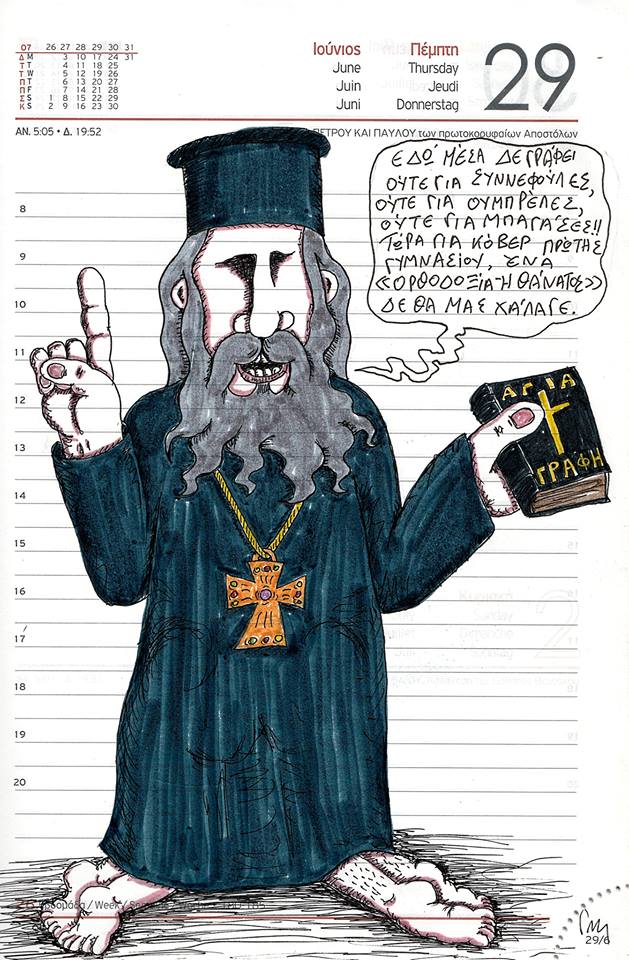 07 26 27 28 29 30 31
Δ M 3 10 17 24 31
Τ T 4 11 18 25
Τ W 5 12 19 26
Π T 6 13 20 27
Π F 7 14 21 28
Σ S 1 8 15 22 29
Κ S 2 9 16 23 30
Ιούνιος Πέμπτη
June Thursday
Juin Jeudi
Juni Donnerstag
29
ΑΝ. 5:05 • Δ. 19:52
ΠΕΤΡΟΥ ΚΑΙ ΠΑΥΛΟΥ των πρωτοκορυφαίων Αποστόλων
ΕΔΏ ΜΈΣΑ ΔΕ ΓΡΆΦΕΙ
ΟΎΤΕ ΓΙΑ ΣΥΝΝΕΦΟΎΛΕΣ,
ΟΎΤΕ ΓΙΑ ΟΥΜΠΡΈΛΕΣ,
ΟΎΤΕ ΓΙΑ ΜΠΑΓΆΣΕΣ!!
ΤΏΡΑ ΓΙΑ ΚΌΒΕΡ ΠΡΏΤΗΣ
ΓΥΜΝΑΣΊΟΥ, ΈΝΑ
«ΟΡΘΟΔΟΞΊΑ Ή ΘΆΝΑΤΟΣ»
ΔΕ ΘΑ ΜΑΣ ΧΆΛΑΓΕ.
8
9
10
11
12
13
14
15
16
17
18
19
20
ΑΓΙΑ
ΓΡΑΦΗ
/ Week /
29/6